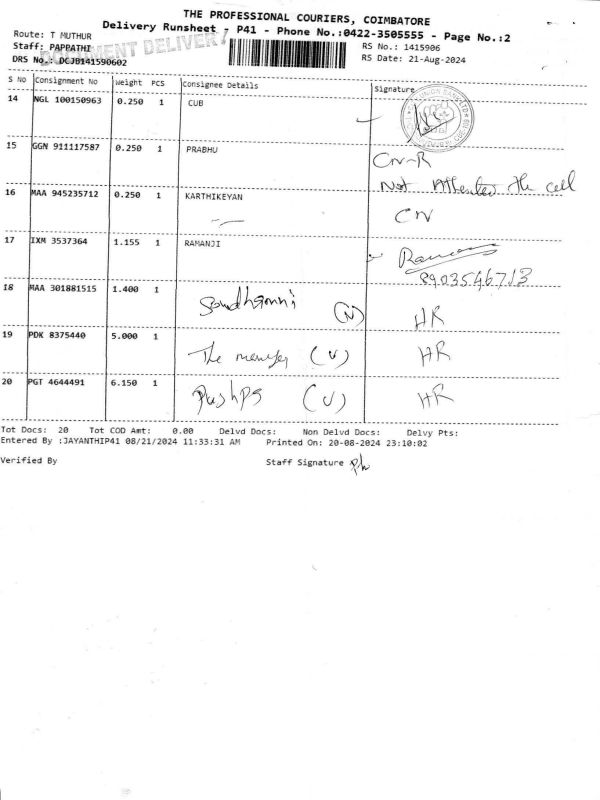 THE PROFESSIONAL COURIERS, COIMBATORE
Delivery Runsheet - P41 - Phone No.:0422-3505555 - Page No.:2
Route: T MUTHUR
RS No.: 1415906
Staff: PAPPATHI
DOCUMENT DELIVERY
RS Date: 21-Aug-2024
DRS No.: DCJB141590602
S No Consignment No Weight PCS Consignee Details Signature
14 NGL 100150963 0.250 1 CUB
15 GGN 911117587 0.250 1 PRABHU
CN-R
Not Attended the call
16 MAA 945235712 0.250 1 KARTHIKEYAN
CN
17 IXM 3537364 1.155 1 RAMANJI
8903546713
18 MAA 301881515 1.400 1
(N) HR
19 PDK 8375440 5.000 1
The (V) HR
20 PGT 4644491 6.150 1
Pushpa (V) HR
Tot Docs: 20 Tot COD Amt: 0.00 Delvd Docs: Non Delvd Docs: Delvy Pts:
Entered By :JAYANTHIP41 08/21/2024 11:33:31 AM Printed On: 20-08-2024 23:10:02
Verified By Staff Signature